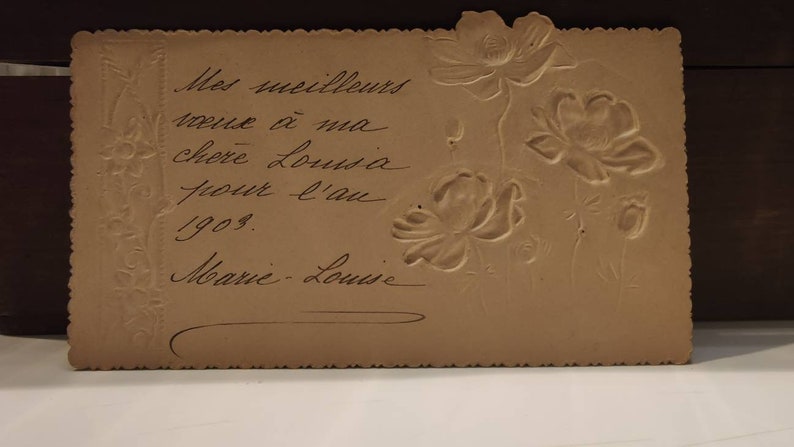 Mes meilleurs
vœux à ma
chère Louisa
pour l'an
1903.
Marie-Louise